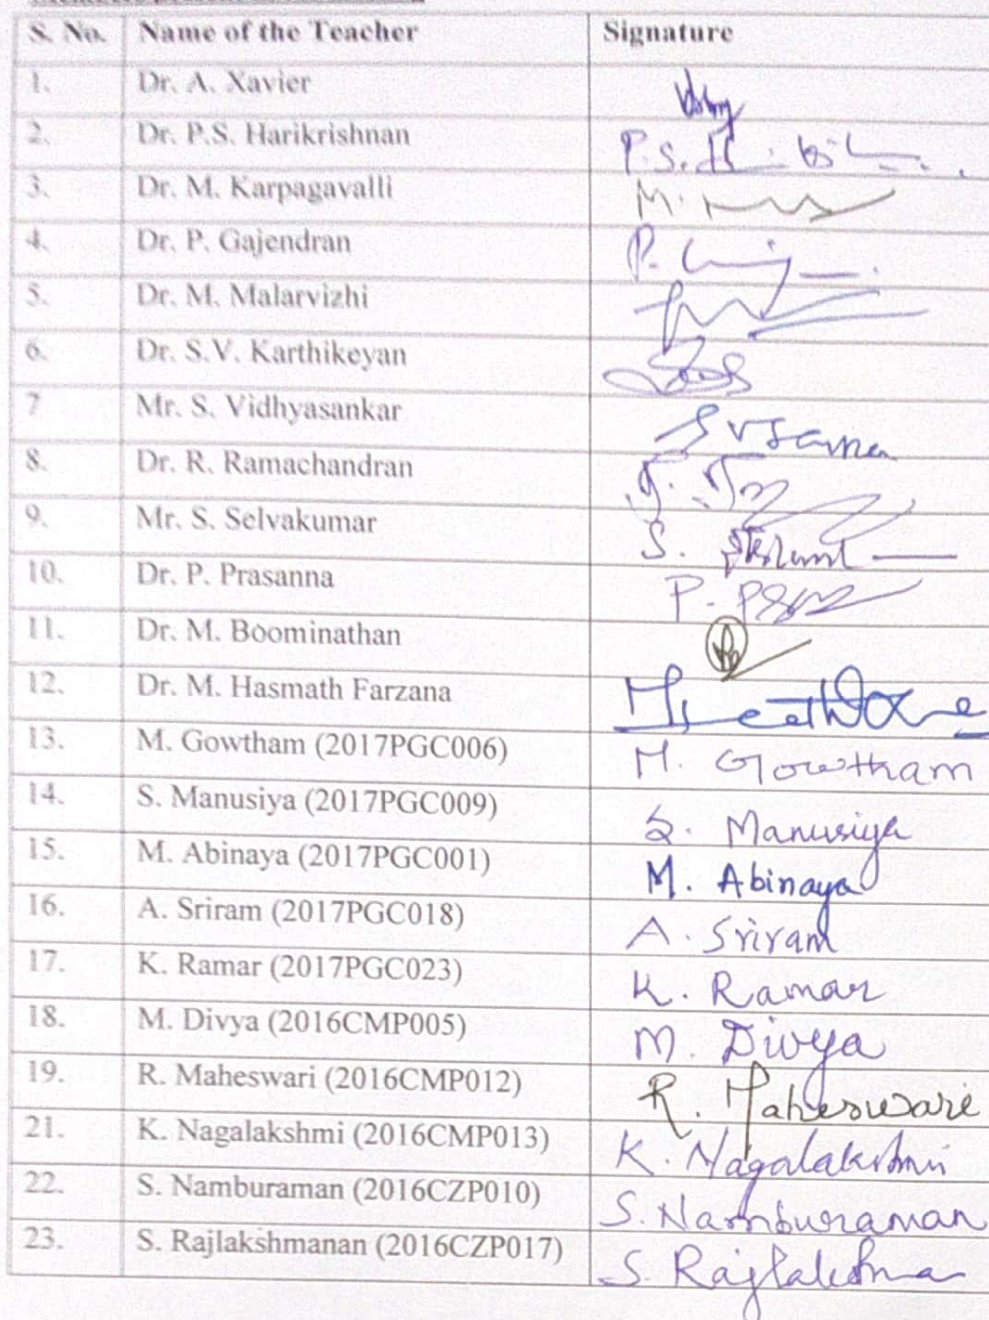 S. No. Name of the Teacher Signature
1. Dr. A. Xavier
2. Dr. P.S. Harikrishnan P.S.
3. Dr. M. Karpagavalli M.
4. Dr. P. Gajendran P.
5. Dr. M. Malarvizhi
6. Dr. S.V. Karthikeyan
7 Mr. S. Vidhyasankar
8. Dr. R. Ramachandran
9. Mr. S. Selvakumar S.
10. Dr. P. Prasanna P.
11. Dr. M. Boominathan
12. Dr. M. Hasmath Farzana
13. M. Gowtham (2017PGC006) M. Gowtham
14. S. Manusiya (2017PGC009) S. Manusiya
15. M. Abinaya (2017PGC001) M. Abinaya
16. A. Sriram (2017PGC018) A. Sriram
17. K. Ramar (2017PGC023) K. Ramar
18. M. Divya (2016CMP005) M. Divya
19. R. Maheswari (2016CMP012) R. Maheswari
21. K. Nagalakshmi (2016CMP013) K. Nagalakshmi
22. S. Namburaman (2016CZP010) S. Namburaman
23. S. Rajlakshmanan (2016CZP017) S.